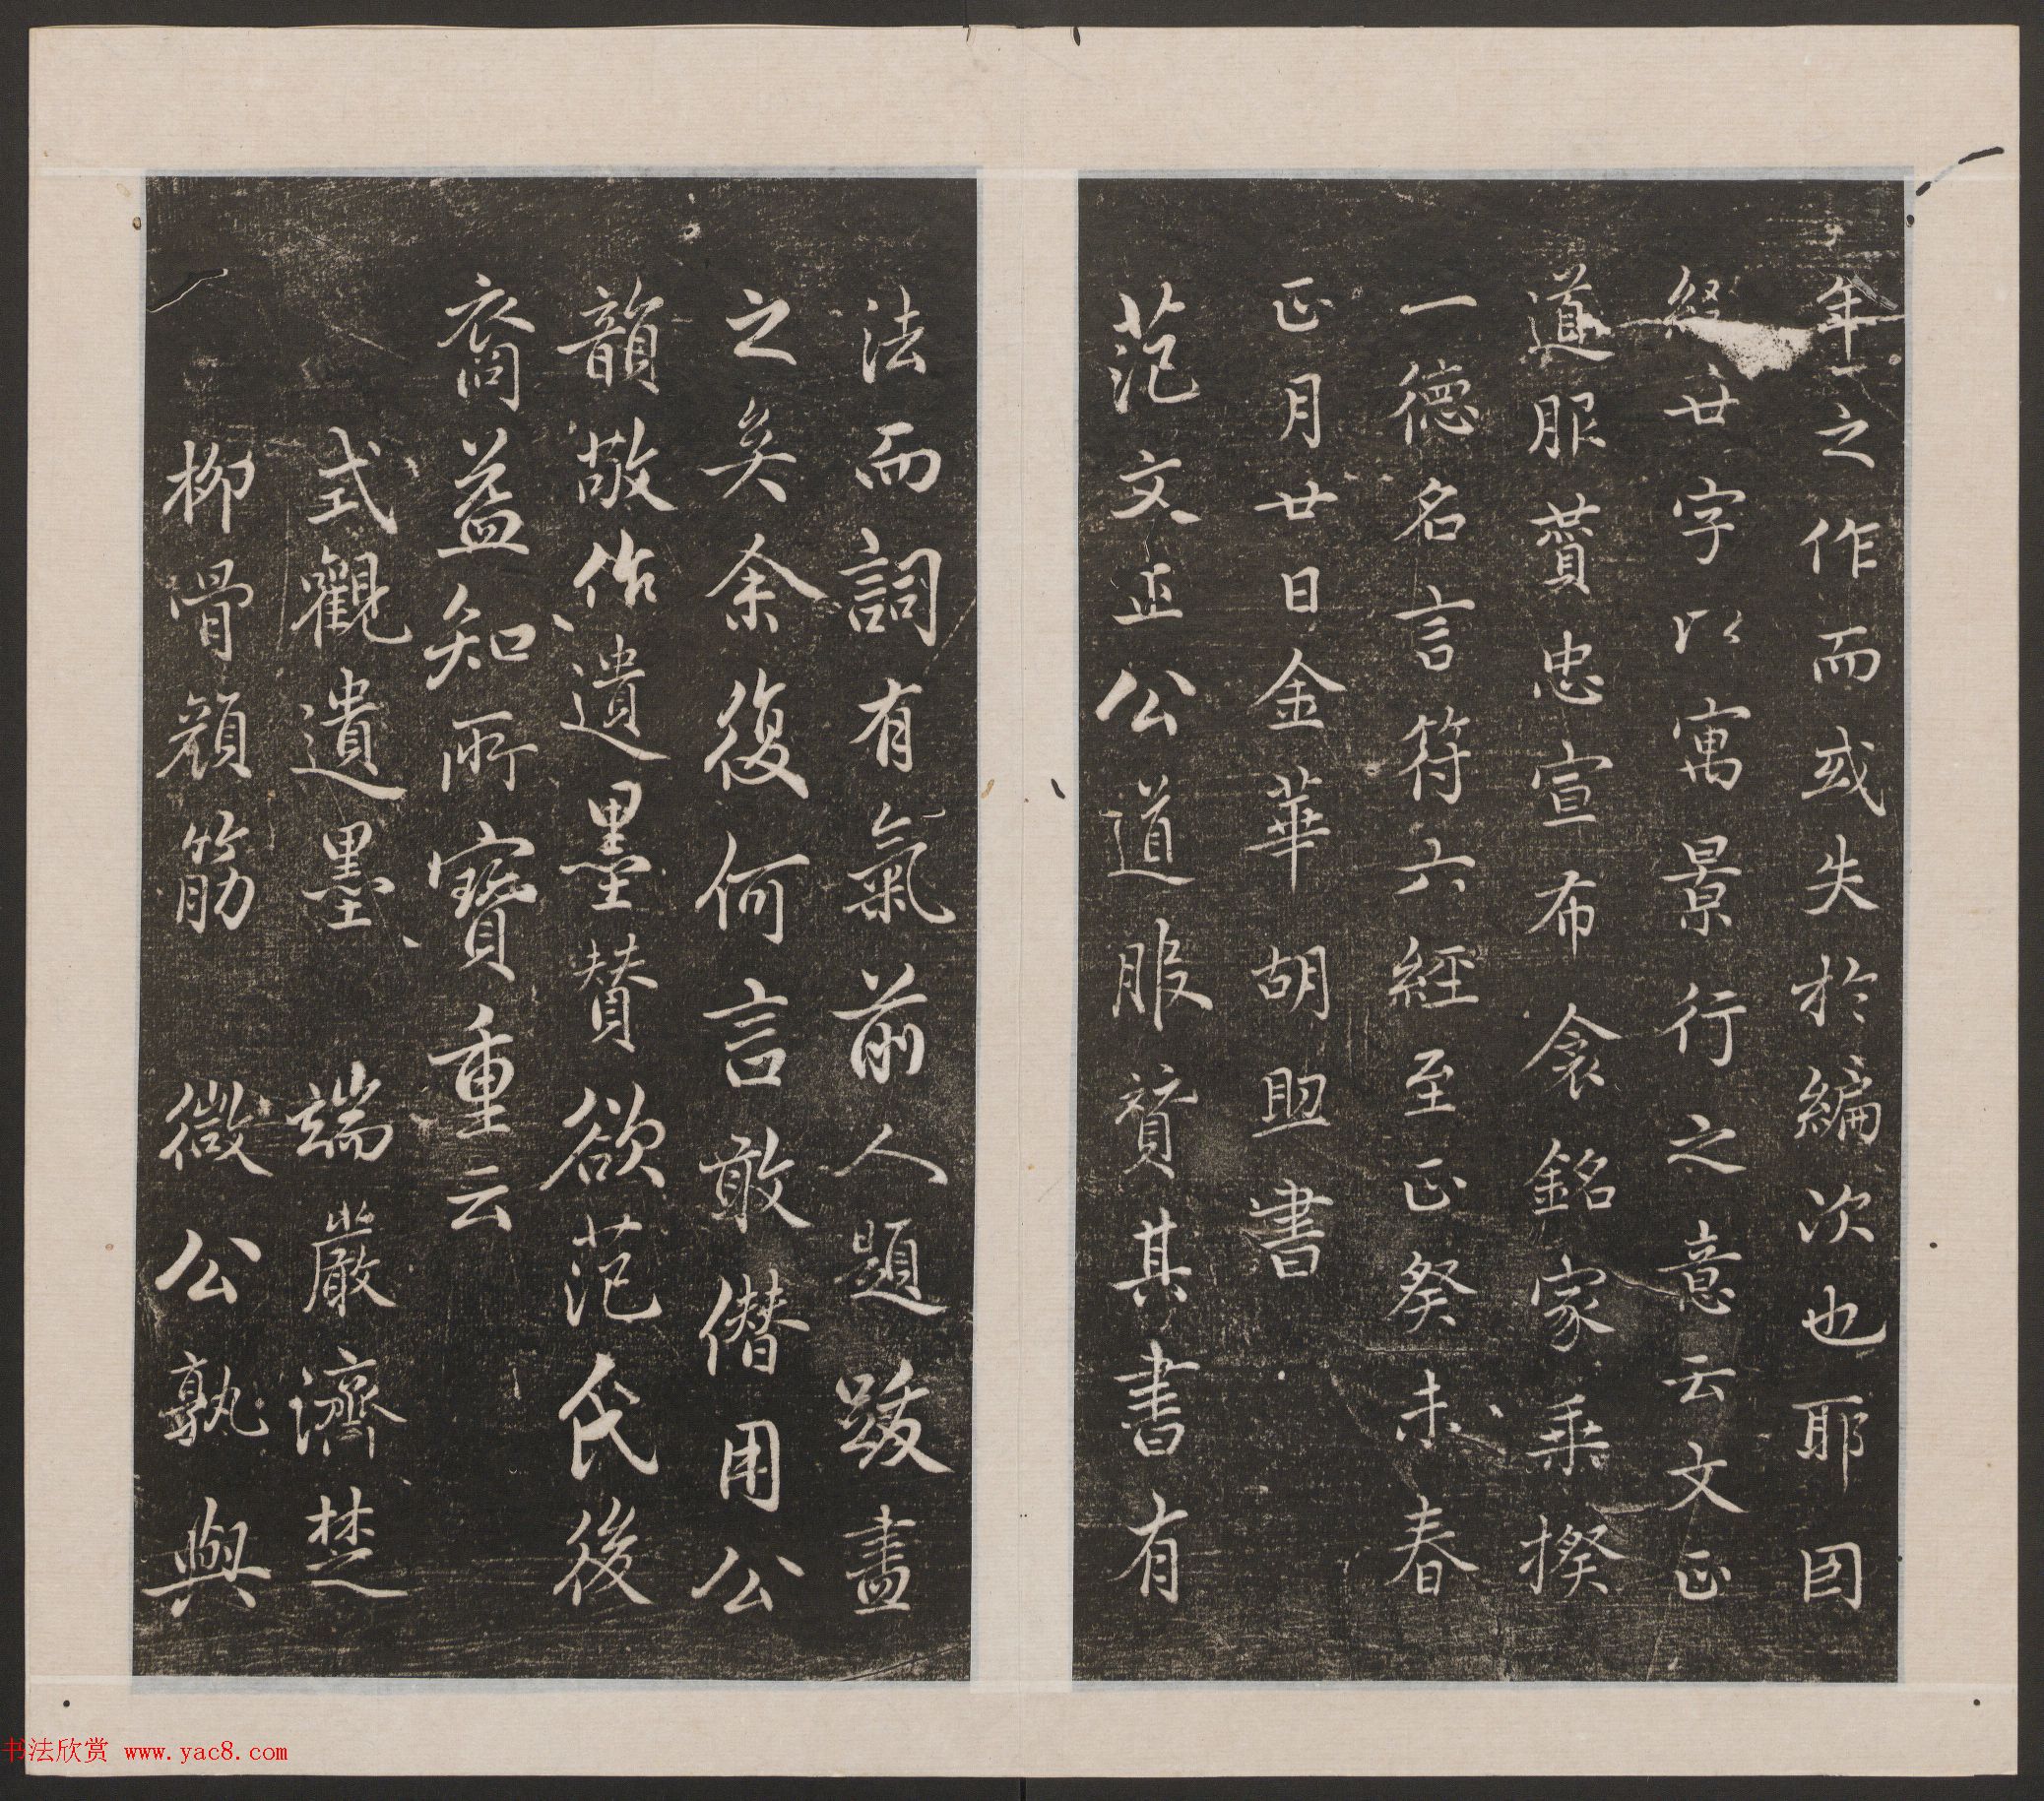 年之作而或失於編次也耶因
綴廿字以寓景行之意云文正
道服贊忠宣布衾銘家乗揆
一德名言符六經至正癸未春
正月廿日金華胡助書
范文正公道服贊其書有
法而詞有氣前人題跋盡
之矣余復何言敢僭用公
韻敬作遺墨贊欲范氏後
裔益知所寶重云
式觀遺墨 端嚴濟楚
柳骨顏筋 微公孰與
书法欣赏 www.yac8.com